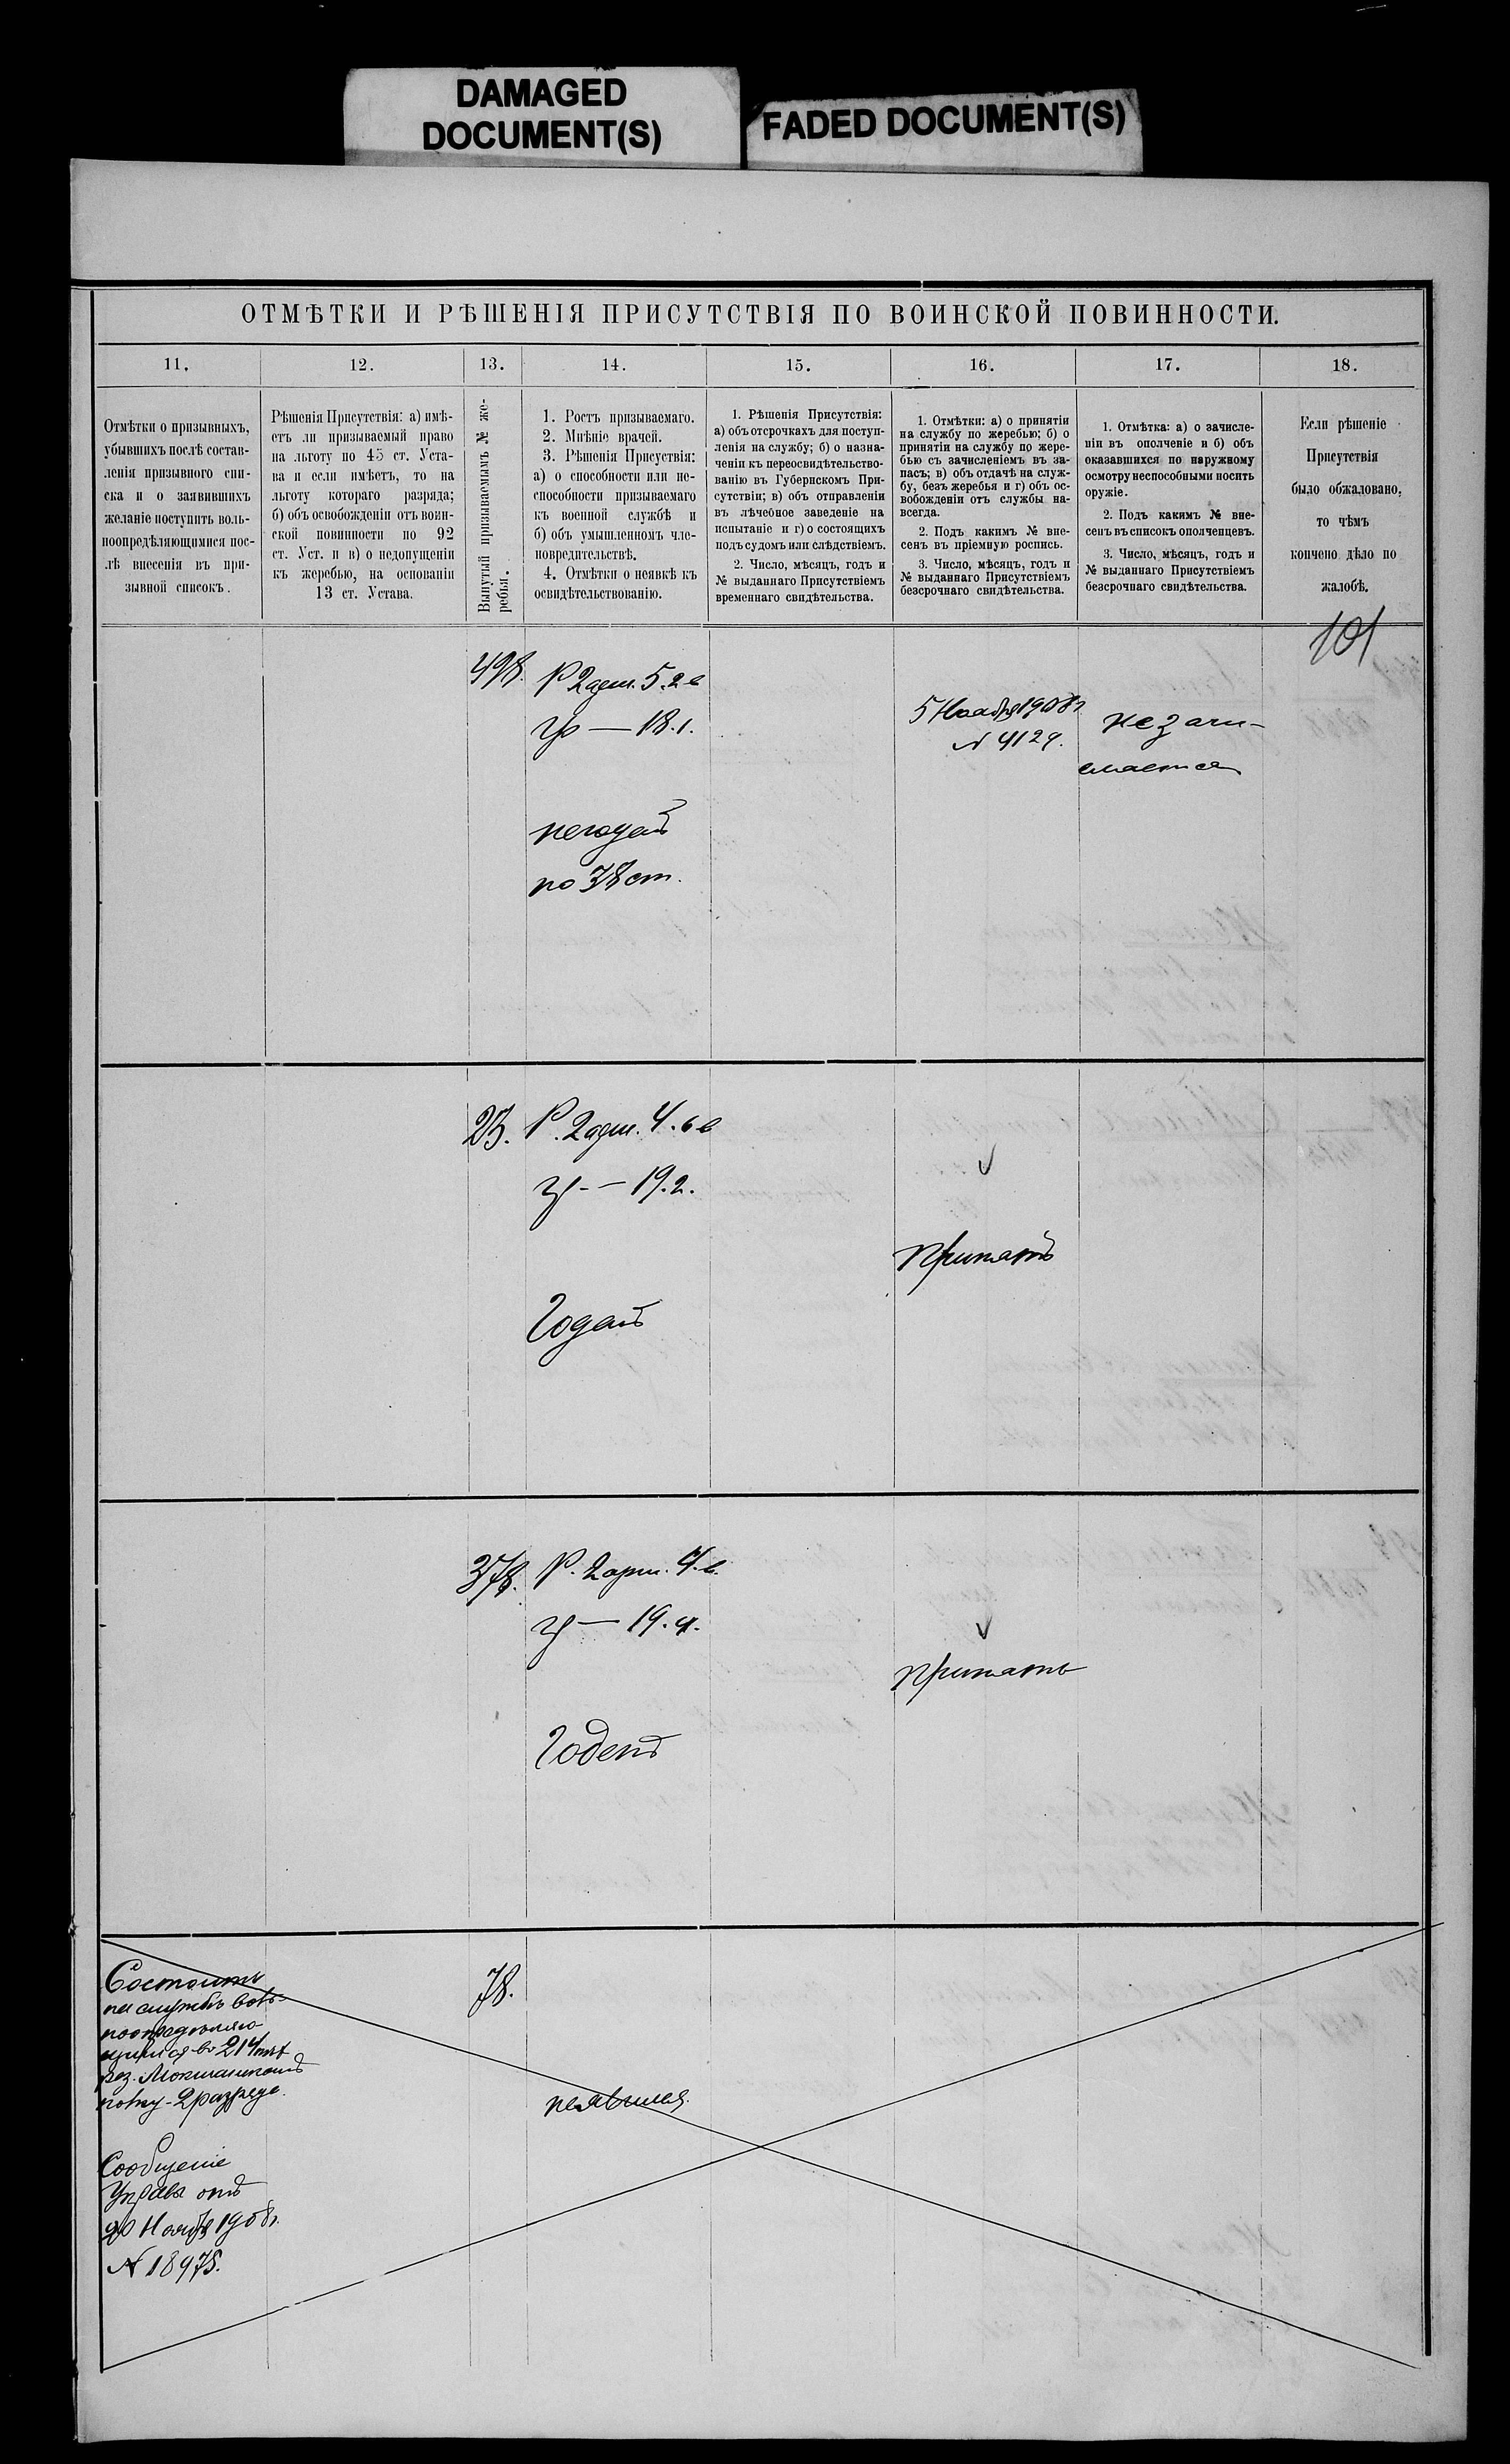 DAMAGED
DOCUMENT(S)
FADED DOCUMENT(S)
ОТМѢТКИ И РѢШЕНІЯ ПРИСУТСТВІЯ ПО ВОИНСКОЙ ПОВИННОСТИ.
11.
12.
13.
14.
15.
16.
17.
18.
Отмѣтки о призывныхъ,
убывшихъ послѣ состав-
ленія призывного спи-
ска и о заявившихъ
желаніе поступить воль-
ноопредѣляющимися пос-
лѣ внесенія въ при-
зывной списокъ.
Рѣшенія Присутствія: а) имѣ-
етъ ли призываемый право
на льготу по 45 ст. Уста-
ва и если имѣетъ, то на
льготу котораго разряда;
б) объ освобожденіи отъ воин-
ской повинности по 92
ст. Уст. и в) о недопущеніи
къ жеребью, на основаніи
13 ст. Устава.
Вынутый призываемымъ № же-
ребья.
1. Ростъ призываемаго.
2. Мнѣніе врачей.
3. Рѣшенія Присуствія:
а) о способности или не-
способности призываемаго
къ военной службѣ и
б) объ умышленномъ чле-
новредительствѣ.
4. Отмѣтки о неявкѣ къ
освидѣтельствованію.
1. Рѣшенія Присутствія:
а) объ отсрочкахъ для поступ-
ленія на службу; б) о назна-
ченіи къ переосвидѣтельство-
ванію въ Губернскомъ При-
сутствіи; в) объ отправленіи
въ лѣчебное заведеніе на
испытаніе и г) о состоящихъ
подъ судомъ или слѣдствіемъ.
2. Число, мѣсяцъ, годъ и
№ выданнаго Присутствіемъ
временнаго свидѣтельства.
1. Отмѣтки: а) о принятіи
на службу по жеребью; б) о
принятіи на службу по жере-
бью съ зачисленіемъ въ за-
пасъ; в) объ отдачѣ на служ-
бу, безъ жеребья и г) объ ос-
вобожденіи отъ службы на-
всегда.
2. Подъ какимъ № вне-
сенъ въ пріемную роспись.
3. Число, мѣсяцъ, годъ и
№ выданнаго Присутствіемъ
безсрочнаго свидѣтельства.
1. Отмѣтка: а) о зачисле-
ніи въ ополченіе и б) объ
оказавшихся по наружному
осмотру неспособными носить
оружіе.
2. Подъ какимъ № вне-
сенъ въ списокъ ополченцевъ.
3. Число, мѣсяцъ, годъ и
№ выданнаго Присутствіемъ
безсрочнаго свидѣтельства.
Если рѣшеніе
Присутствія
было обжаловано,
то чѣмъ
кончено дѣло по
жалобѣ.
101
498.
Р 2 арш. 5.2 в
гр — 18.1.
негоденъ
по 38 ст.
5 Ноября 1908 г
№ 4129.
не зачи-
сляется
25.
Р. 2 арш. 4.6 в
гр — 19.2.
Годенъ
√
Принятъ
378.
Р. 2 арш. 4. в.
гр — 19.4.
Годенъ
√
Принятъ
Состоитъ
на службѣ воль-
ноопредѣляю-
щимся въ 214 пѣх
рез. Мокшанскомъ
полку - 2 разряда.
Сообщеніе
Управы отъ
Ноября 1908 г.
№ 18975.
78.
неявился.